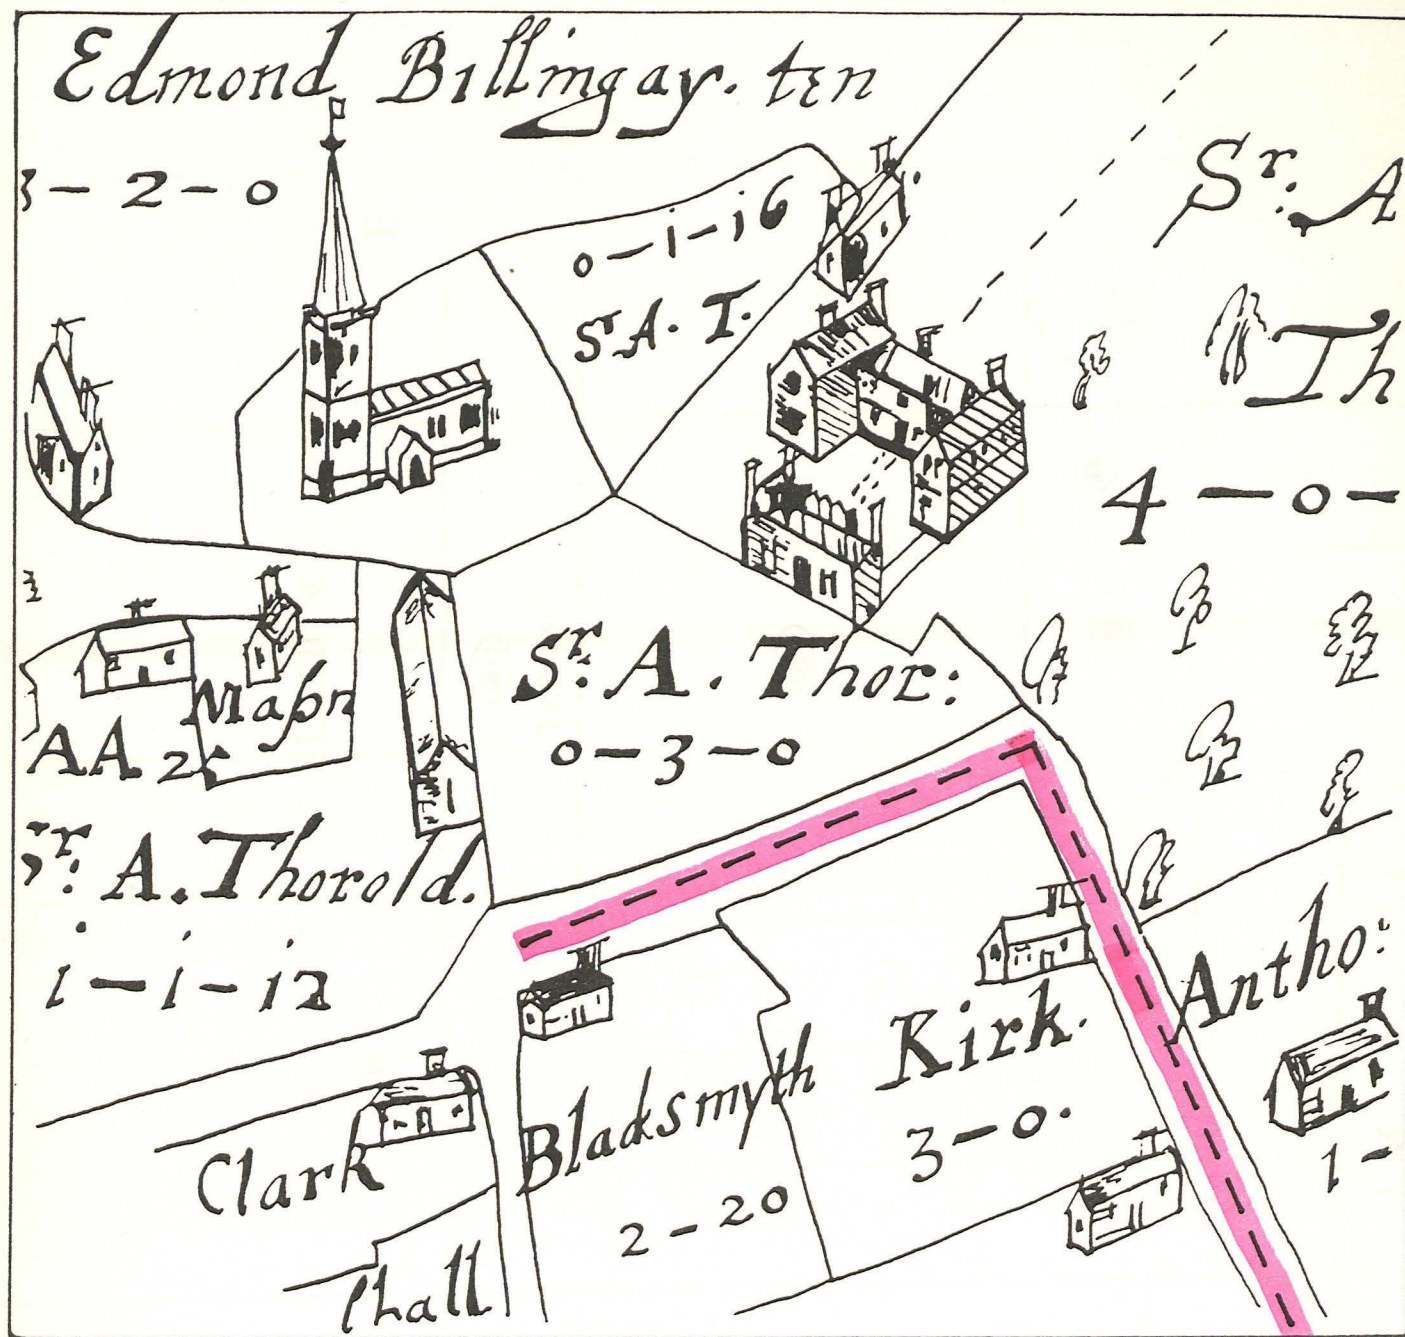 Edmond Billingay. ten
3-2-0
0-1-16
Sr. A. T.
Sr. A
Th
4-0-
Mapn
AA 2
Sr. A. Thor:
0-3-0
Sr. A. Thorold.
1-1-12
Antho:
1-
Kirk.
3-0.
Bladksmyth
2-20
Clark
Chall